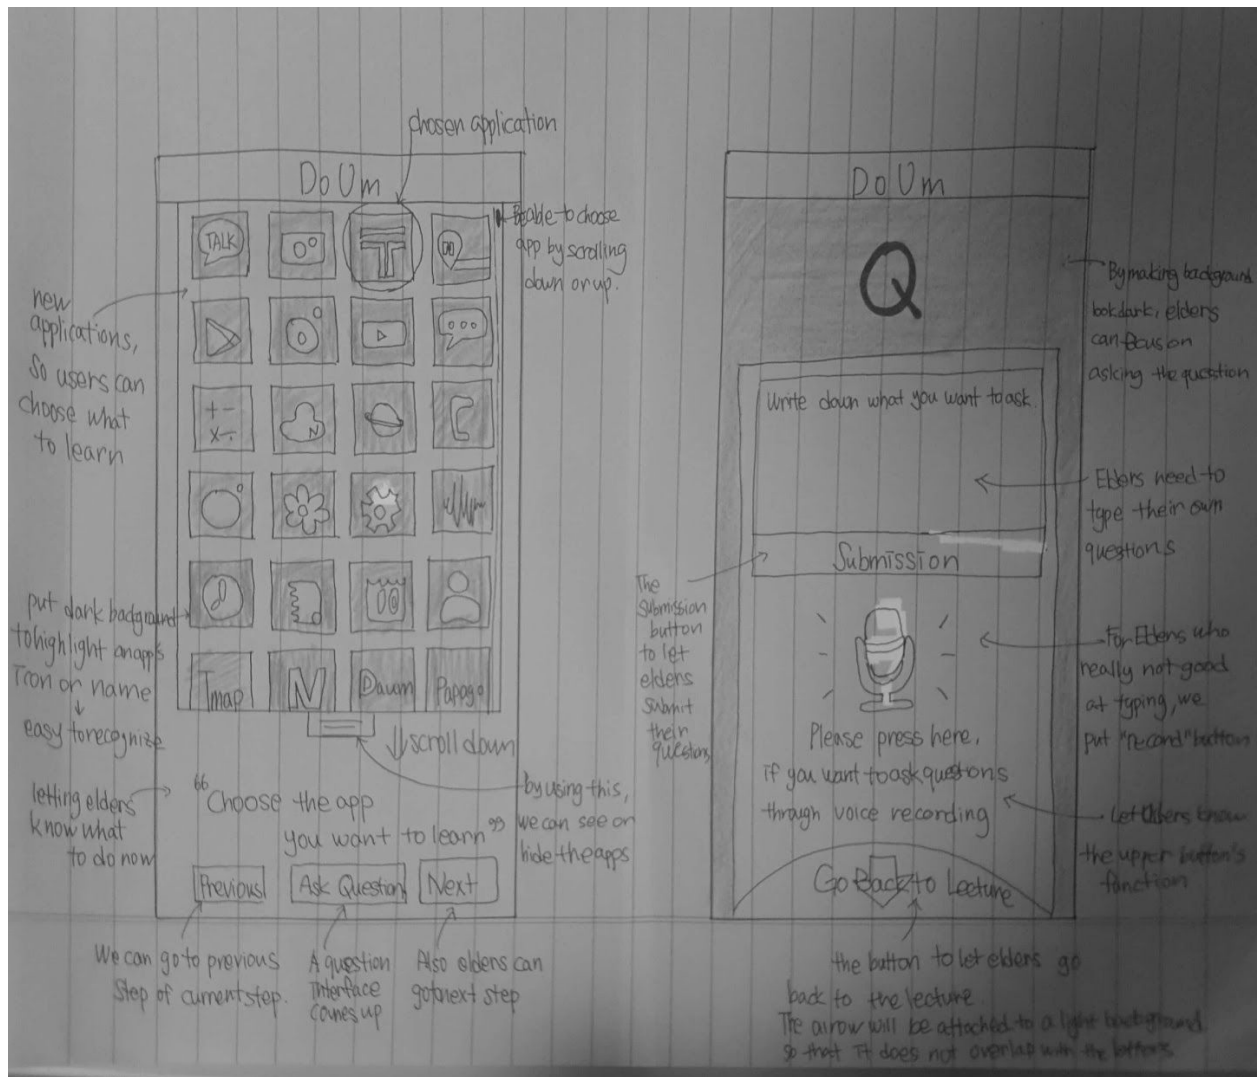 chosen application
DoUm
TALK
T
Beable to choose
app by scrolling
down or up.
new
applications,
So users can
choose what
to learn
+ -
x ÷
N
put dark background
to highlight an app's
Icon or name
easy to recognize
Tmap
N
Daum
Papago
scroll down
letting elders
know what
to do now
"Choose the app
you want to learn"
by using this,
we can see or
hide the apps
Previous
Ask Question
Next
We can go to previous
Step of current step.
A question
Interface
comes up
Also elders can
go to next step
DoUm
Q
By making background
dark, elders
can focus on
asking the question
Write down what you want to ask.
Elders need to
type their own
questions
Submission
The
submission
button
to let
elders
submit
their
questions
For Elders who
really not good
at typing, we
put "record" button
Please press here,
if you want to ask questions
through voice recording
Let Elders know
the upper button's
function
Go Back to Lecture
the button to let elders go
back to the lecture.
The arrow will be attached to a light background
so that it does not overlap with the